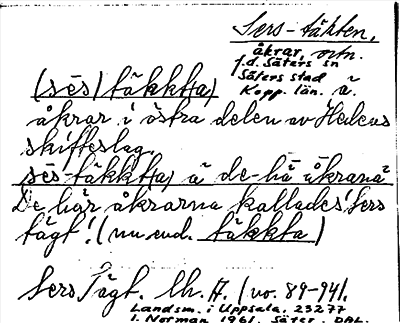 Sers-täkten,
åkrar, ortn.
f.d. Säters sn
Säters stad
Kopp. län.
(sēs) täkkta)
åkrar i östra delen av Hedens
skifteslag.
sēs-täkkta) ä de-hä åkrana
De här åkrarna kallades: Sers
tägt! (nu end. täkkta)
Sers Tägt. Lh. A. (vo. 89-94).
Landsm. i Uppsala, 23277
I. Norman 1961. Säter. DAL.